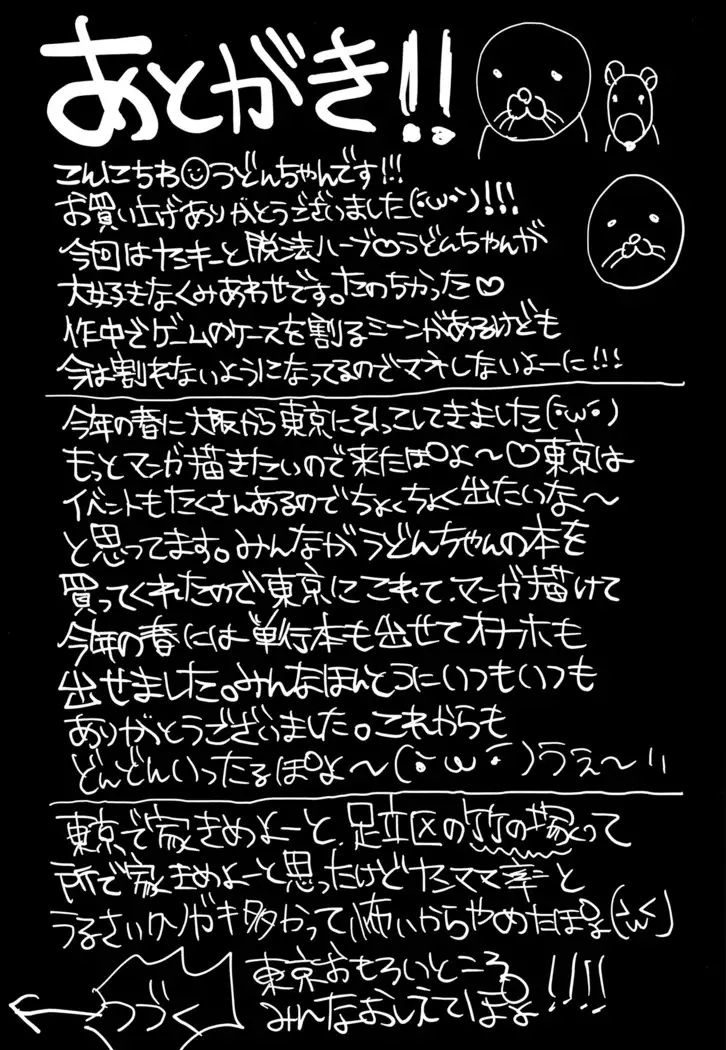 あとがき!!
こんにちわ☺うどんちゃんです!!!
お買い上げありがとうございました(´・ω・`)!!!
今回はヤンキーと脱法ハーブ♡うどんちゃんが
大好きなくみあわせです。たのちかった♡
作中でゲームのケースを割るシーンがあるけども
今は割れないようになってるのでマネしないよーに!!!
今年の春に大阪から東京に引っこしてきました(´・ω・`)
もっとマンガ描きたいので来たぽよ〜♡東京は
イベントもたくさんあるのでちょくちょく出たいな〜
と思ってます。みんながうどんちゃんの本を
買ってくれたので東京にこれて、マンガ描けて
今年の春には単行本も出せてオナホも
出せました。みんなほんとうにいつもいつも
ありがとうございました。これからも
どんどんいったるぽよ〜(´・ω・`)うぇ〜い
東京で家きめよーと、足立区の竹の塚って
所で家きめよーと思ったけどヤンママ率と
うるさいクソガキ多かって怖いからやめたぽよ
東京おもろいところ
みんなおしえてぽよ!!!!
つづく